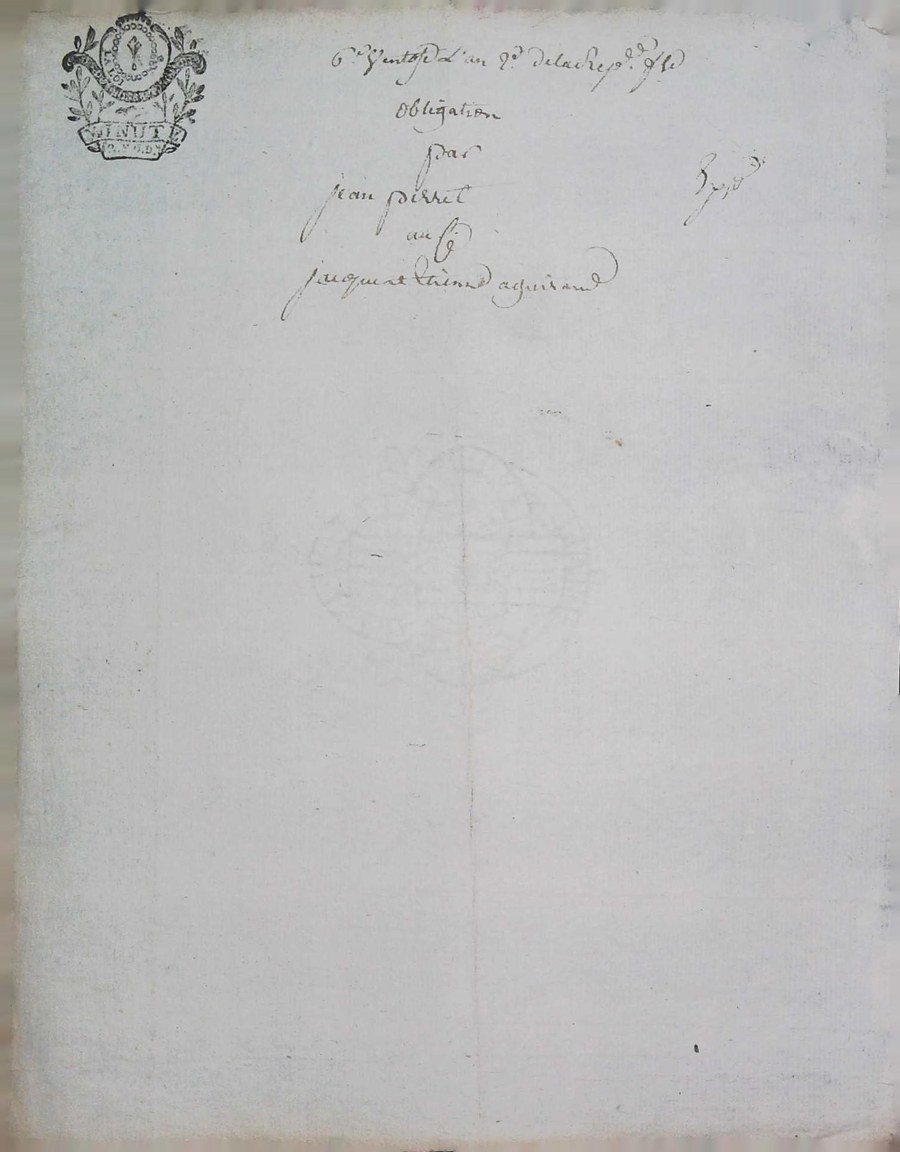 MINUTE
6e Ventose L'an 2e de la Rep.que f.se
obligation
par
jean pierret
au Ce
jacques Etienne aguirand